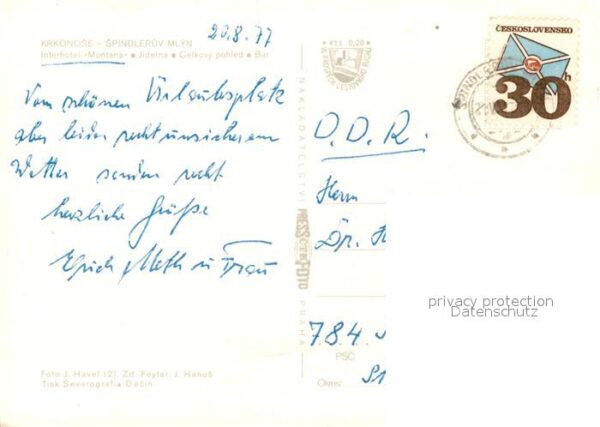 20.8.77
KRKONOŠE - ŠPINDLERŮV MLÝN
Interhotel »Montana« ● Jídelna ● Celkový pohled ● Bar
Vom schönen Urlaubsplatz
aber leider recht unsicherem
Wetter senden recht
herzliche Grüße
Erich u Frau
Foto J. Havel (2), Zd. Feyfar, J. Hanuš
Tisk Severografia Děčín
NAKLADATELSTVÍ PRESSFOTO PRAHA
411 0,20
ČESKOSLOVENSKO
30h
D.D.R.
Herrn
784
PSČ
Okres:
privacy protection
Datenschutz